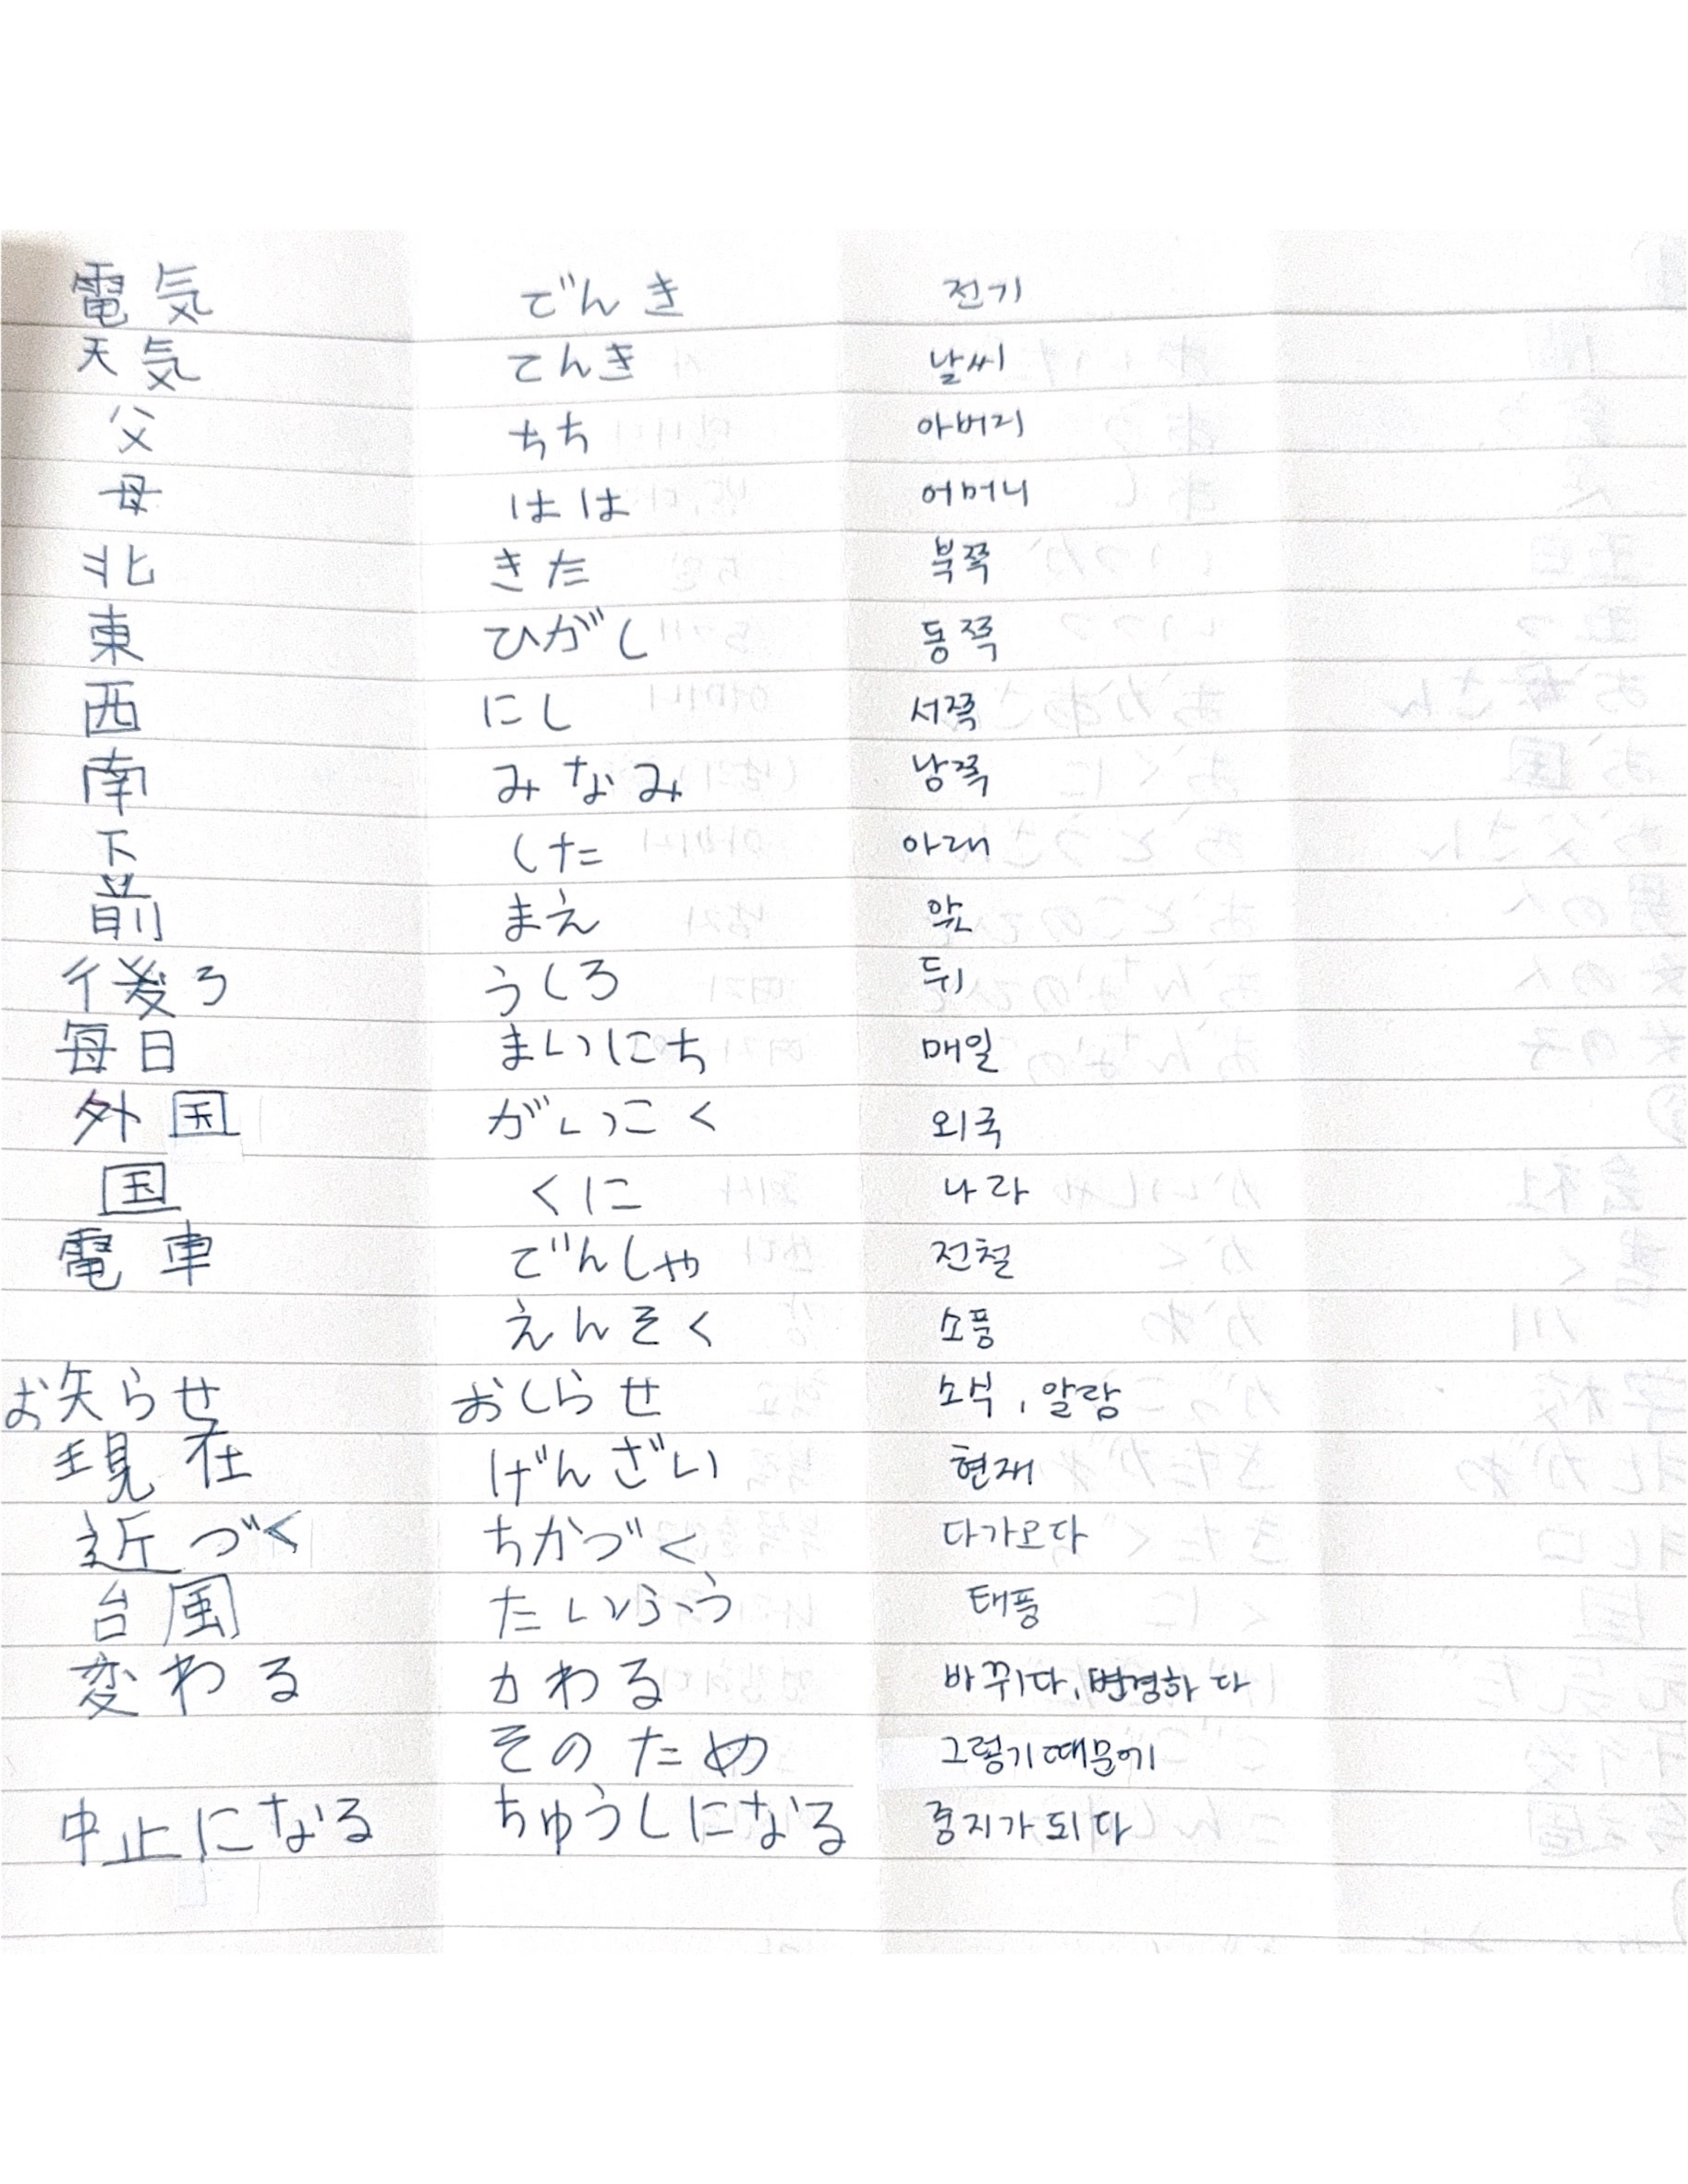 電気 でんき 전기
天気 てんき 날씨
父 ちち 아버지
母 はは 어머니
北 きた 북쪽
東 ひがし 동쪽
西 にし 서쪽
南 みなみ 남쪽
下 した 아래
前 まえ 앞
後ろ うしろ 뒤
毎日 まいにち 매일
外国 がいこく 외국
国 くに 나라
電車 でんしゃ 전철
えんそく 소풍
お知らせ おしらせ 소식, 알람
現在 げんざい 현재
近づく ちかづく 다가오다
台風 たいふう 태풍
変わる かわる 바뀌다, 변경하다
そのため 그렇기때문에
中止になる ちゅうしになる 중지가 되다